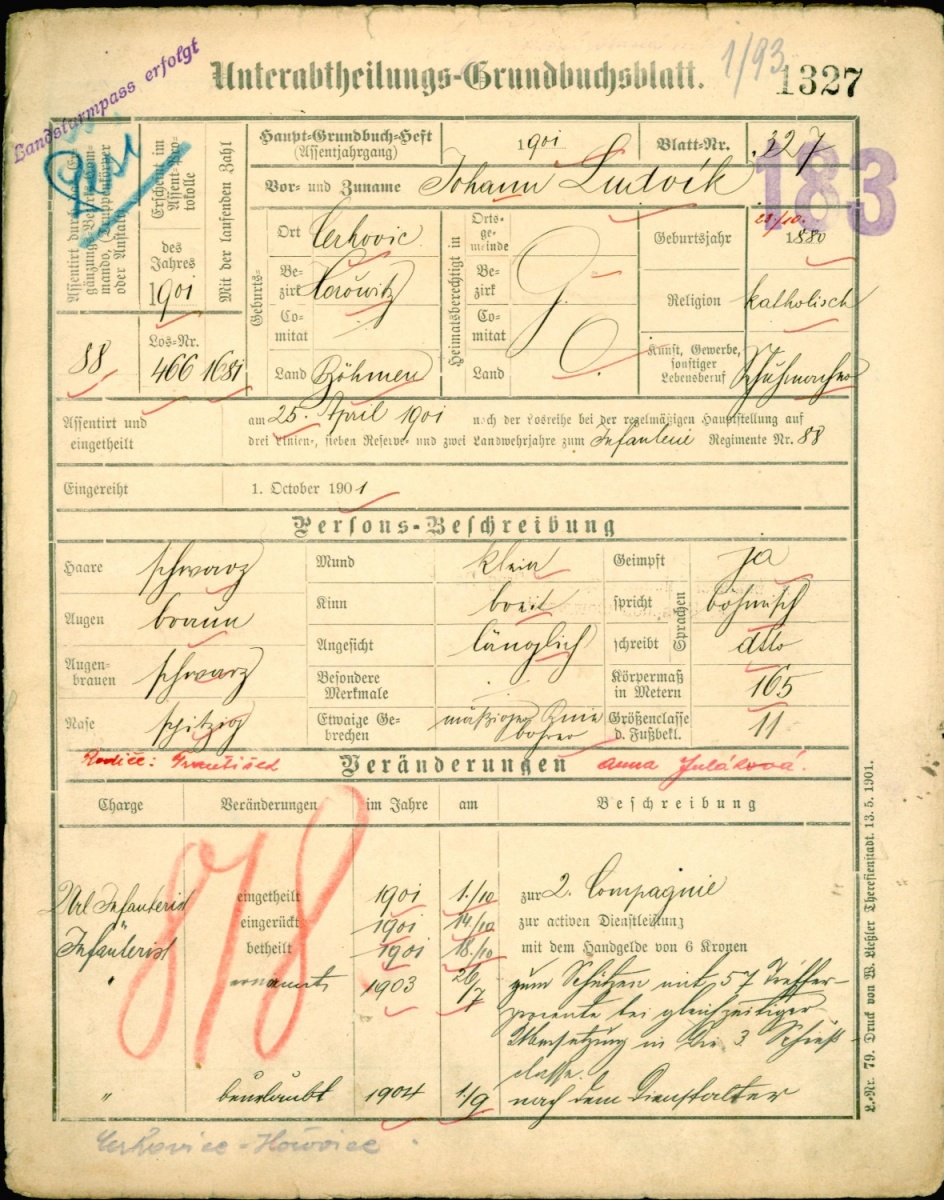 Landsturmpass erfolgt
1/93
Unterabtheilungs-Grundbuchsblatt.
1327
183
Assentirt durch
Erscheint im Assent-protokolle
des Jahres
1901
Mit der laufenden Zahl
88
Los-Nr.
466
1681
Haupt-Grundbuch-Heft
(Assentjahrgang)
1901
Blatt-Nr.
227
Vor- und Zuname Johann Ludvík
Geburts-
Ort Cerhovic
Bezirk Horowitz
Comitat
Land Böhmen
Heimatsberechtigt in
Ortsgemeinde
Bezirk
Comitat
Land
G. O.
Geburtsjahr
1880
Religion katholisch
Kunst, Gewerbe, sonstiger Lebensberuf Schuhmacher
Assentirt und eingetheilt
am 25. April 1901 nach der Losreihe bei der regelmäßigen Hauptstellung auf
drei Linien-, sieben Reserve- und zwei Landwehrjahre zum Infanterie Regimente Nr. 88
Eingereiht 1. October 1901
Persons-Beschreibung
Haare schwarz
Mund klein
Geimpft ja
Augen braun
Kinn breit
Sprachen
spricht böhmisch
Augenbrauen schwarz
Angesicht länglich
schreibt dtto
Besondere Merkmale
Körpermaß in Metern 165
Nase spitzig
Etwaige Gebrechen mäßiger Knie bohrer
Größenclasse d. Fußbekl. 11
Rodiče: František
Veränderungen
Anna Juláková.
Charge Veränderungen im Jahre am Beschreibung
878
Url Infanterist eingetheilt 1901 1./10 zur 2. Compagnie
eingerückt 1901 14./10 zur activen Dienstleistung
Infanterist betheilt 1901 18./10 mit dem Handgelde von 6 Kronen
" ernannt 1903 26/7 zum Schützen mit 57 Treffer-
procente bei gleichzeitiger
Übersetzung in die 3 Schieß-
classe.
" beurlaubt 1904 1./9 nach dem Dienstalter
Cerhovice - Hořovice
L.-Nr. 79. Druck von W. Ließler Theresienstadt. 13. 5. 1901.